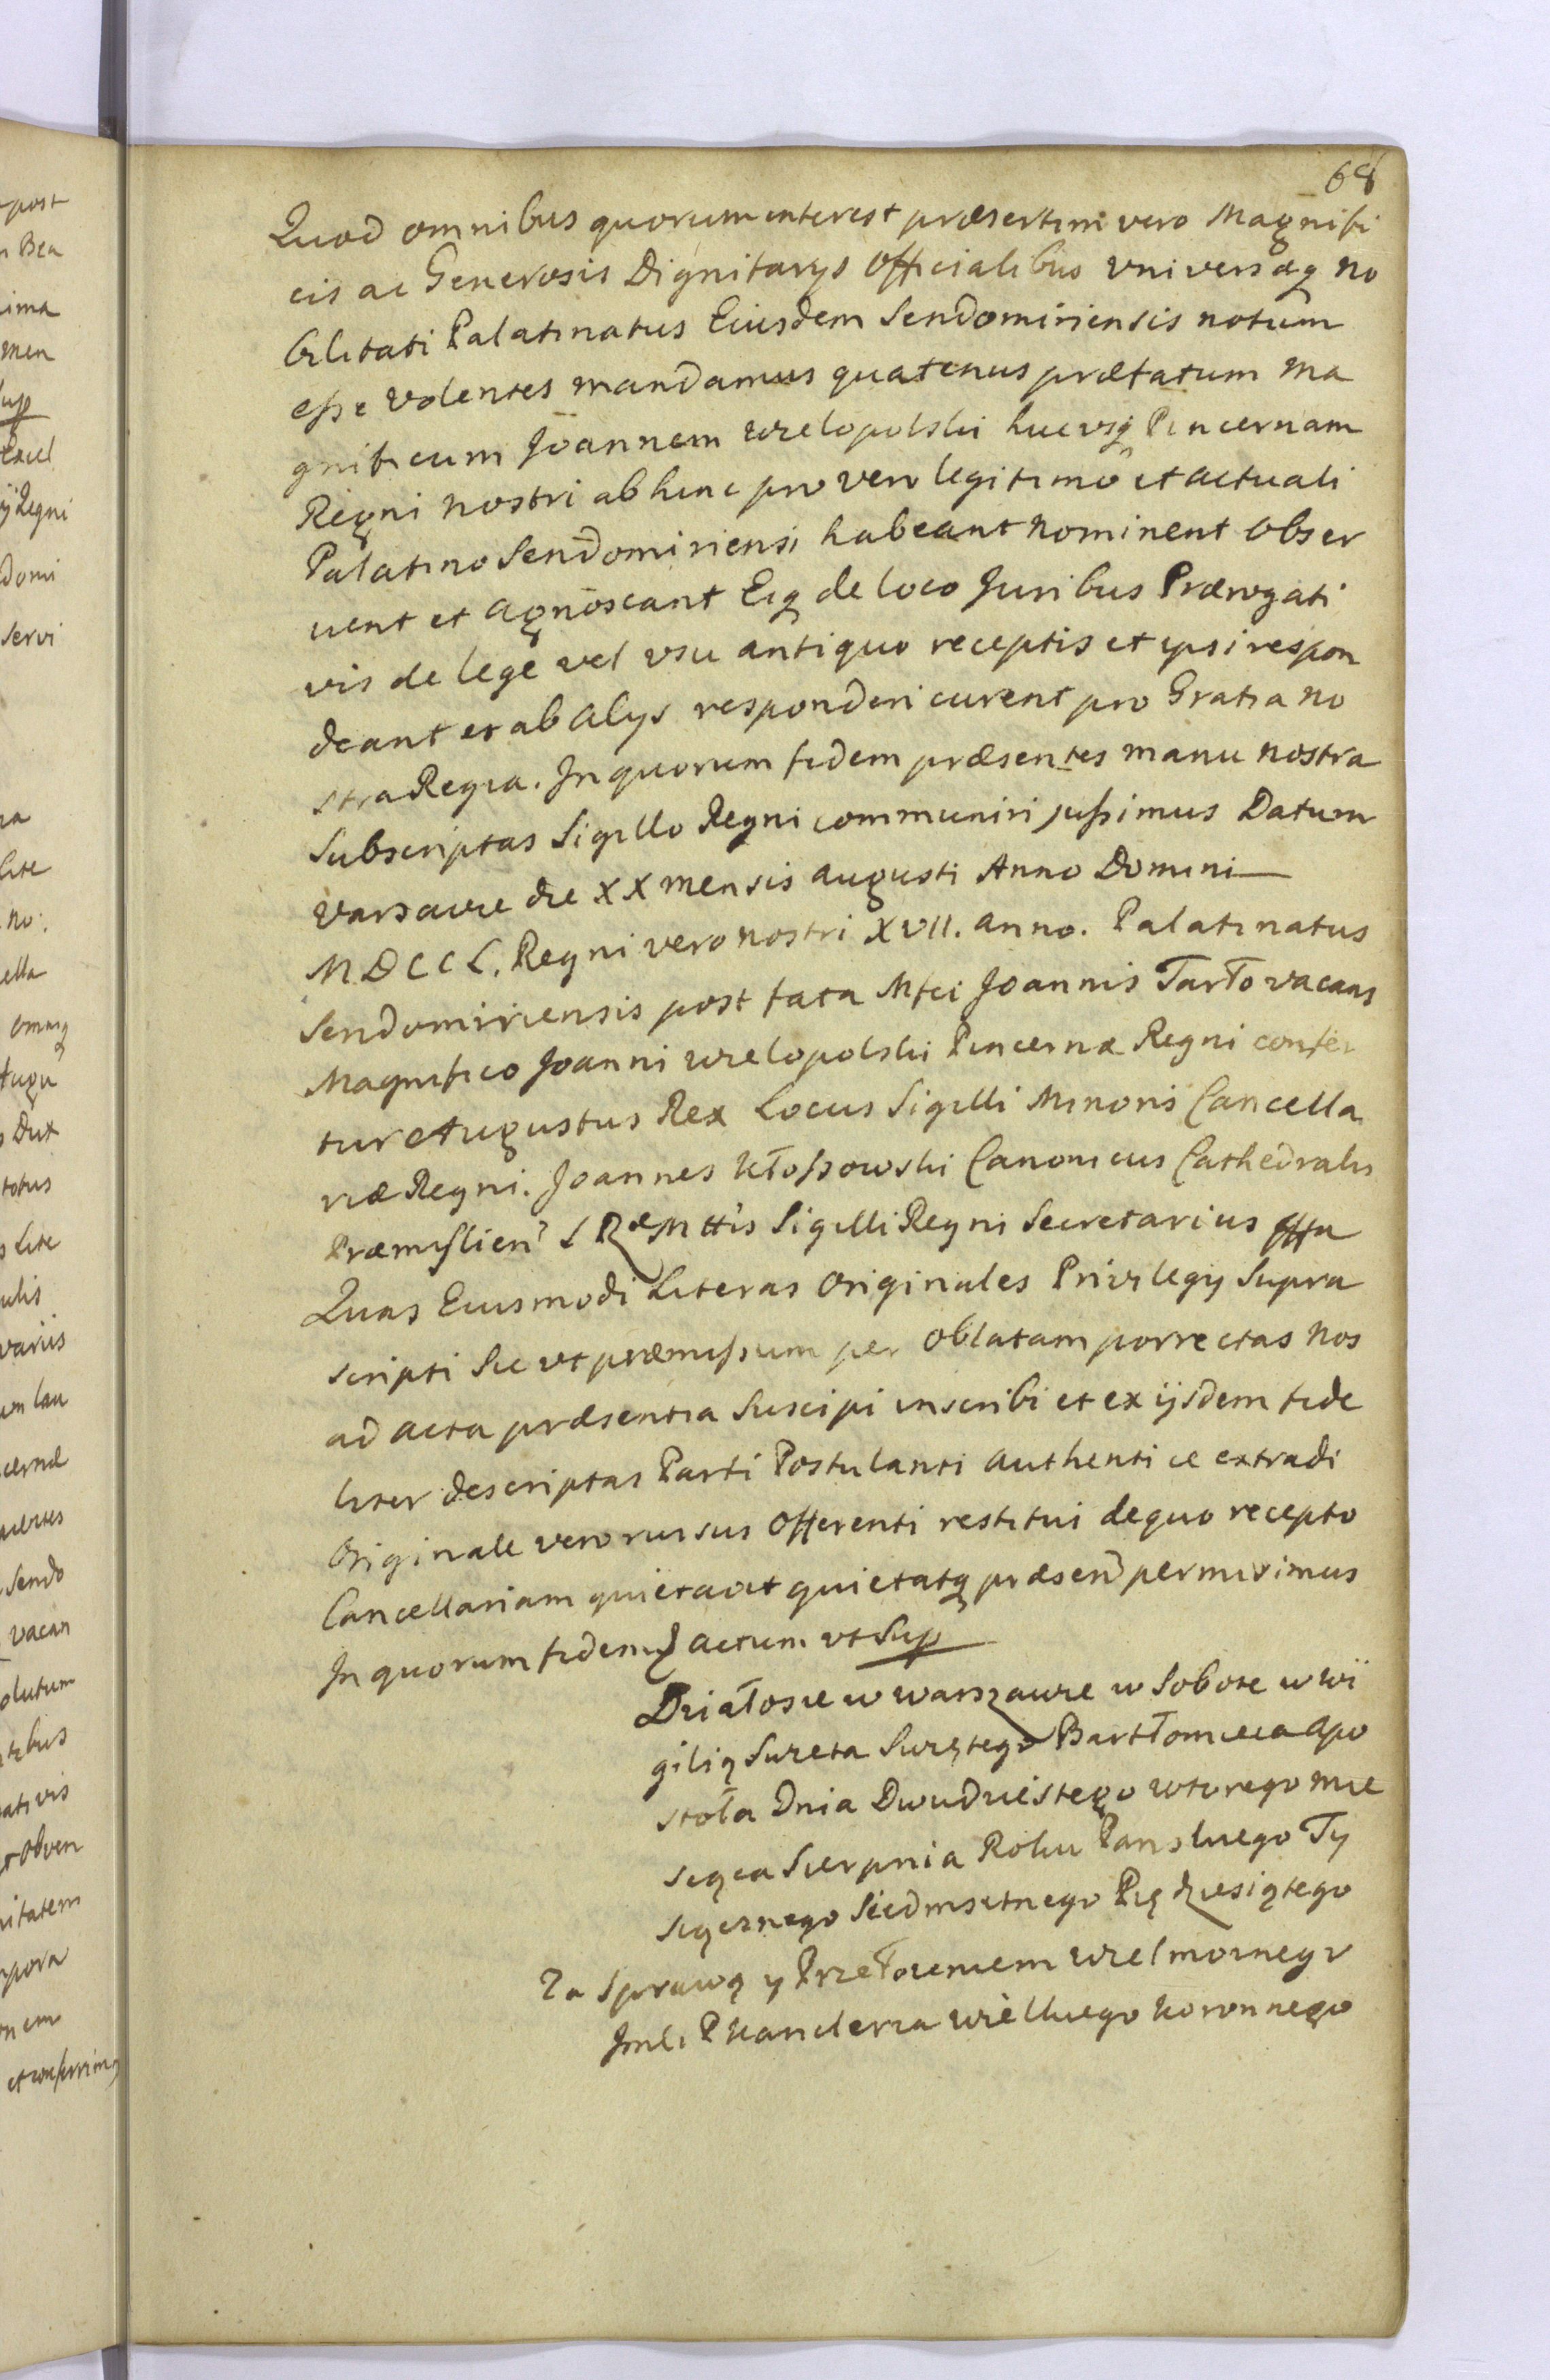 68
Quod omnibus quorum interest præsertim vero Magnifi
cis ac Generosis Dignitarys Officialibus universæq no
bilitati Palatinatus Eiusdem Sendomiriensis notum
eße volentes mandamus quatenus præfatum Ma
gnificum Joannem Wielopolski hucusq Pincernam
Regni Nostri abhinc pro vero legitimô et actuali
Palatino Sendomiriensi habeant nominent obser
vent et agnoscant Eiq de loco Juribus Prærogati
vis de lege vel vsu antiquo receptis et ypsi respon
deant et ab alys responderi curent pro Gratia no
stra Regia. In quorum fidem præsentes manu nostra
Subscriptas Sigillo Regni communiri jußimus Datum
Varsaviæ die XX mensis Augusti Anno Domini
MDCCL. Regni vero nostri XVII. anno. Palatinatus
Sendomiriensis post fata Mfci Joannis Tarło vacans
Magnifico Joanni Wielopolski Pincernæ Regni confer
tur Augustus Rex Locus Sigilli Minoris Cancella
riæ Regni. Joannes Kłoßowski Canonicus Cathedralis
Præmislien S Ræ Mttis Sigilli Regni Secretarius
Quas Eiusmodi Literas Originales Privilegy Supra
scripti Sic vt præmißum per Oblatam porrectas Nos
ad acta præsentia Suscipi inscribi et ex ijsdem fide
liter descriptas Parti Postulanti authentice extradi
Originale vero rursus Offerenti restitui de quo recepto
Cancellariam quietavit quietatq præsen permisimus
In quorum fidem Actum vt Sup
Działosie w Warszawie w Sobotę w wi
gilią Swięta Swiętego Bartłomieia Apo
stoła Dnia Dwudziestego wtorego mie
siąca Sierpnia Roku Pańskiego Ty
siącznego Siedmsetnego Pięćdziesiątego
Za Sprawą y Przełożeniem Wielmożnego
Jmci P Kanclerza Wielkiego Koronnego